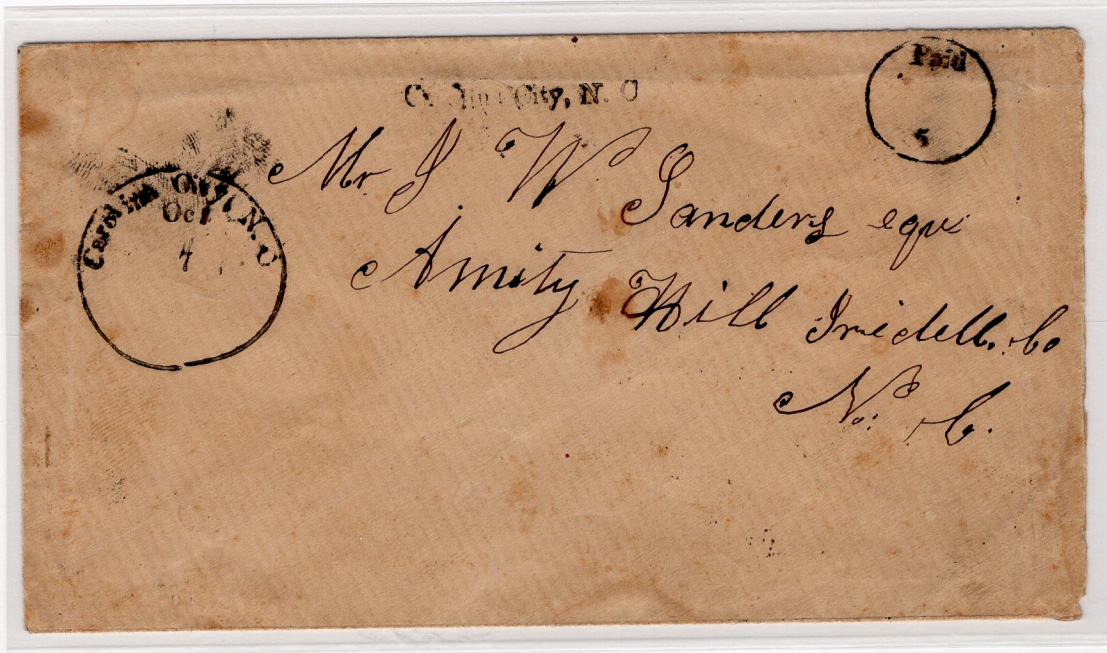 Paid
5
Carolina City, N. C
Carolina City, N. C
Oct
4
Mr J W Sanders esqr
Amity Hill Iredell. Co
No. C.